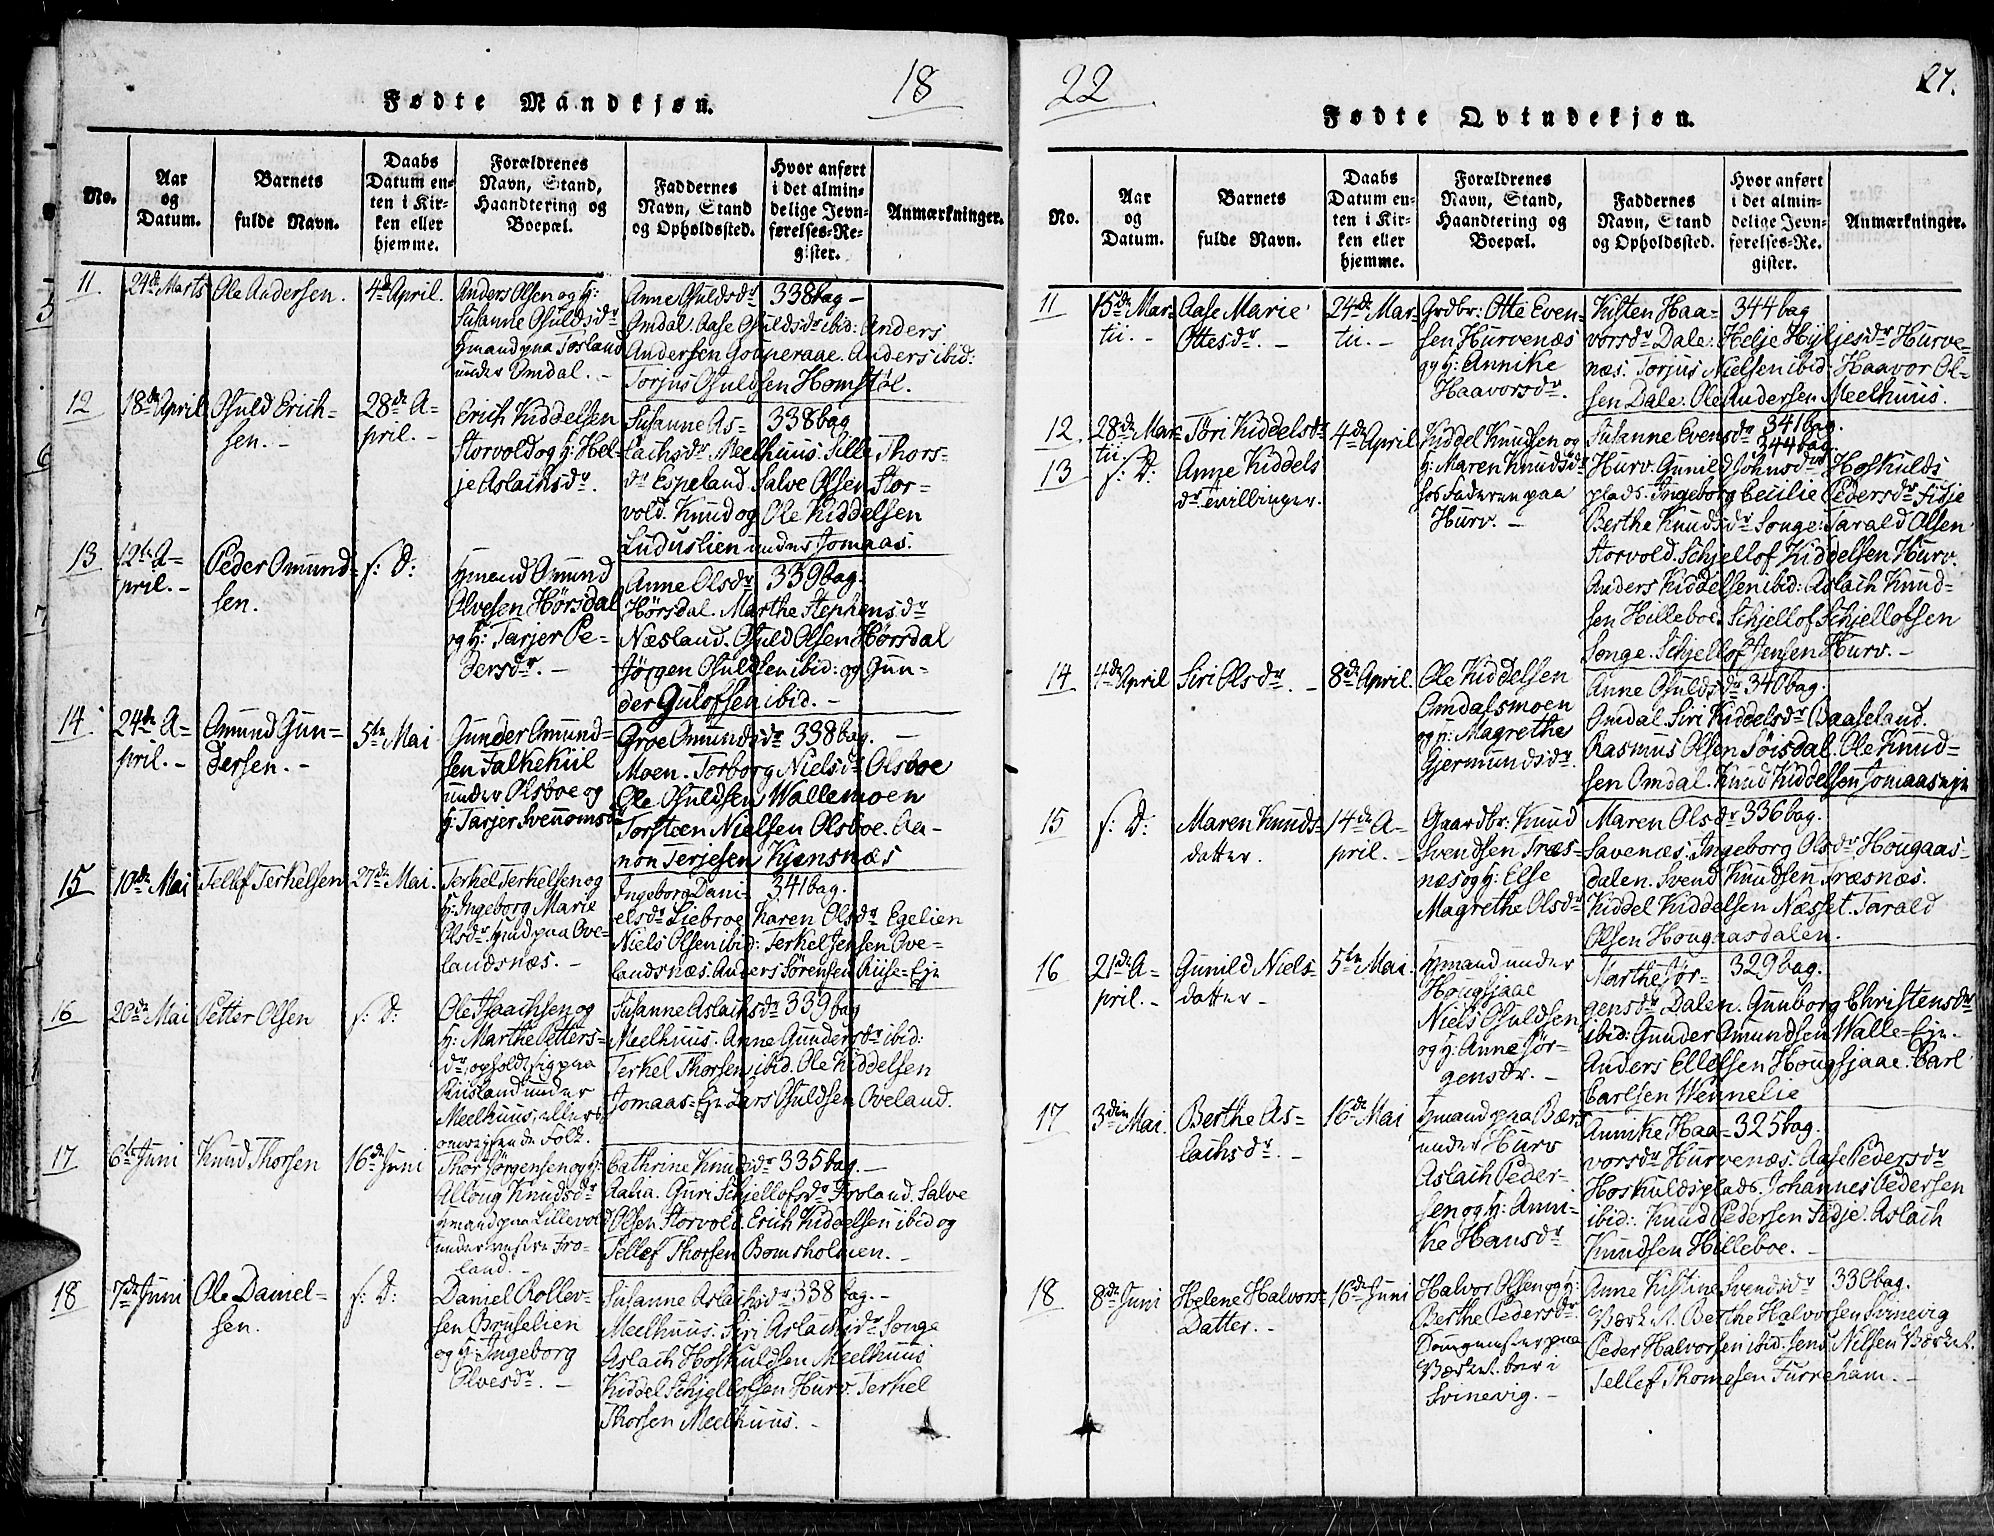 18
Fødte Mandkjøn.
No.
Aar
og
Datum.
Barnets
fulde Navn.
Daabs
Datum en-
ten i Kir-
ken eller
hjemme.
Forældrenes
Navn, Stand,
Haandtering og
Boepæl.
Faddernes
Navn, Stand
og Opholdssted.
Hvor anført
i det almin-
delige Jevn-
førelses-Re-
gister.
Anmærkninger.
11
24de Marts
Ole Andersen.
4de April.
Anders Olsen og H:
Susanne Osuldsdr
Hmand paa Torsland
under Omdal. -
Anne Osuldsdr 338 bag -
Omdal. Aase Osuldsdr ibid: Anders
Andersen Gouperaae. Anders ibid:
Torjus Osuldsen Homstøl.
12
18de April
Osuld Erich-
sen. -
28de A-
pril. -
Erich Kiddelsen
Storvold og H: Hel-
je Aslachsdr.
Susanne As- 338 bag
lachsdr Meelhuus. Sille Thors-
dr Espeland Salve Olsen Stor-
vold. Knud og Ole Kiddelsen
Luduslien under Jomaas.
13
12te A-
pril. -
Peder Omund-
sen.
s: D:
Hmand Omund
Olvesen Hørsdal
og H: Tarjer Pe-
dersdr. -
Anne Olsdr 339 bag.
Hørsdal. Marthe Stephensdr
Næsland. Osuld Olsen Hørsdal
Jørgen Osuldsen ibid: og Gun-
der Gulofsen ibid. -
14
24de A-
pril. -
Omund Gun-
dersen. -
5te Mai
Gunder Omund-
sen Falkekiil
under Olsboe og
H: Tarjer Svenomsdr
Groe Omundsdr 338 bag. -
Moen. Torborg Nielsdr Olsboe
Ole Osuldsen Wallemoen
Torsteen Nielsen Olsboe. Aa-
non Terjesen Kiensnæs
15
10de Mai
Tellef Terkelsen
27de Mai.
Terkel Terkelsen og
H: Ingeborg Marie
Olsdr. Hmd paa Ove-
landsnæs. -
Ingeborg Dani- 341 bag.
elsdr Liebroe Karen Olsdr Egelien
Niels Olsen ibid: Terkel Jensen Ove-
landsnæs. Anders Sørensen Riise-Eje
16
20de Mai
Petter Olsen
s: D:
Ole Isaachsen og
H: Marthe Petters-
dr, opholdt sig paa
Riisland under
Meelhuus, ellers
omreisende Folk.
Susanne Aslachsdr 339 bag
Meelhuus. Anne Gundersdr ibid:
Terkel Thorsen ibid. Ole Kiddelsen
Jomaas-Eje Lars Osuldsen Oveland.
17
6te Juni
Knud Thorsen
16de Juni
Thor Jørgensen og H:
Alloug Knudsdr
Hmand paa Lillevold
under Fro-
land. -
Cathrine Knudsdr 335 bag. -
Aalia. Guri Schjellofsdr Froland. Salve
Olsen Storvold. Erich Kiddelsen ibid og
Tellef Thorsen Bomsholmen. -
18
7de Juni
Ole Daniel-
sen.
s: D:
Daniel Rollev-
sen Bruselien
og H: Ingeborg
Olvesdr. -
Susanne Aslachsdr 338 bag. -
Meelhuus. Siri Aslachsdr Songe
Aslach Hoskuldsen Meelhuus
Kiddel Schjellofsen Hurv. Terkel
Thorsen Meelhuus. -
22
27.
Fødte Qvindekjøn.
No.
Aar
og
Datum.
Barnets
fulde Navn.
Daabs
Datum en-
ten i Kir-
ken eller
hjemme.
Forældrenes
Navn, Stand,
Haandtering og
Boepæl.
Faddernes
Navn, Stand
og Opholdssted.
Hvor anført
i det almin-
delige Jevn-
førelses-Re-
gister.
Anmærkninger.
11
15de Mar-
tii. -
Aase Marie
Ottesdr. -
24de Mar-
tii. -
Grdbr: Otte Even-
sen Hurvenæs
og H: Annike
Haavorsdr.
Kisten Haa- 344 bag
vorsdr Dale. Helje Hyljesdr Hurve-
næs. Torjus Nielsen ibid: Haavor Ol-
sen Dale. Ole Andersen Meelhuus.
12.
28de Mar-
tii
Tøri Kiddelsdr
4de April
Kiddel Knudsen og
H: Maren Knudsdr
hos Faderen paa
Hurv. -
13
s: D:
Anne Kiddels
dr tvillinger.
Susanne Evensdr 341 bag.
344 bag
Hurv. Gunild Johnsdr Hoskulds
plads. Ingeborg Cecilie Pedersdr Fidje
Berthe Knudsdr Songe. Tarald Olsen
Storvold. Schjellof Kiddelsen Hurv.
Anders Kiddelsen ibid: Aslach Knud-
sen Hilleboe. Schjellof Schjellofsen
Songe. Schjellof Jensen Hurv. -
14
4de April
Siri Olsdr. -
8de April.
Ole Kiddelsen
Omdalsmoen
og H: Magrethe
Gjermundsdr.
Anne Osuldsdr 340 bag.
Omdal. Siri Kiddelsdr Baaseland.
Rasmus Olsen Søisdal. Ole Knud-
sen Omdal. Knud Kiddelsen Jomaas eje
15
s: D:
Maren Knuds-
datter.
14de A-
pril. -
Gaardbr: Knud
Svendsen Træs-
næs og H: Else
Magrethe Olsdr
Maren Olsdr 336 bag.
Savenæs. Ingeborg Olsdr Hougaas-
dalen. Svend Knudsen Træsnæs.
Kiddel Kiddelsen Næsset. Tarald
Olsen Hougaasdalen.
16
21de A-
pril. -
Gunild Niels-
datter -
5te Mai.
Hmand under
Hougsjaae
Niels Osuldsen
og H: Anne Jør-
gensdr. -
Marthe Jør- 329 bag.
gensdr Dalen. Gunborg Christensdr
ibid: Gunder Omundsen Walle-Eje.
Anders Ellefsen Hougsjaae. Carl
Carlsen Wennelie
17
3die Mai.
Berthe As-
lachsdr. -
16de Mai
Hmand paa Bæs
under Hurv
Aslach Peder-
sen og H: Anni-
ke Hansdr
Annike Haa- 325 bag.
vorsdr Hurvenæs. Aase Pedersdr
Hoskuldsplads. Johannes Pedersen
ibid: Knud Pedersen Fidje. Aslach
Knudsen Hilleboe. -
18
8de Juni
Helene Halvors-
Datter. -
16de Juni
Halvor Olsen og H:
Berthe Pedersdr
paa
Værket. boer i
Svinevig. -
Anne Kistine Svendsdr 330 bag.
Værket. Berthe Halvorsen Svinevig
Peder Halvorsen ibid: Jens Nilsen Værket.
Tellef Thomesen Furreham. -